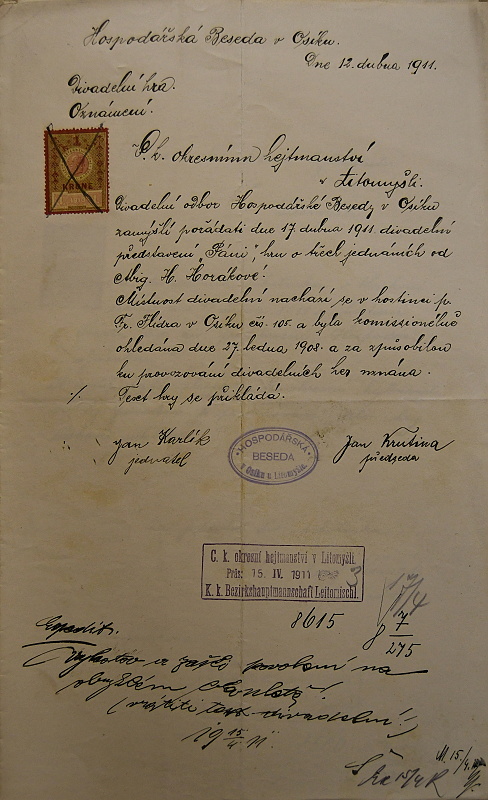 Hospodářská Beseda v Osíku.
Dne 12. dubna 1911.
Divadelní hra.
Oznámení.
1
KRONE
P. k. okresnímu hejtmanství
v Litomyšli.
Divadelní odbor Hospodářské Besedy v Osíku
zamýšlí pořádati dne 17. dubna 1911. divadelní
představení „Páni“, hru o třech jednáních od
Abig. H. Horákové.
Místnost divadelní nachází se v hostinci p.
Fr. Flídra v Osíku čís. 105. a byla komissionélně
ohledána dne 27. ledna 1908. a za způsobilou
ku provozování divadelních her uznána.
·/. Text hry se přikládá.
Jan Karlík
jednatel
HOSPODÁŘSKÁ
BESEDA
v Osíku u Litomyšle.
Jan Krutina
předseda
C. k. okresní hejtmanství v Litomyšli.
Präs: 15. IV. 1911 3
K. k. Bezirkshauptmannschaft Leitomischl.
17/4
8615
8 7/275
Expedit.
povolení na
obvyklém
(vrátiti text divadelní!)
19 15/4 11.
15/4